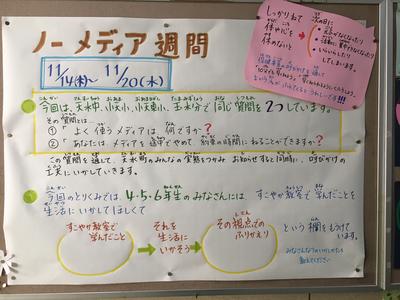 ノーメディア週間
11/14(木)～11/20(水)
しっかりねて
体や心を
休めないと
次の日に
いらいらしたり
してしまいます。
今回は、天水中、小天小、小天東小、玉水分で同じ質問を2つしています。
その質問とは、
①「よく使うメディアは何ですか?
②「あなたは、メディアを途中でやめて約束の時間にねることができますか?
この質問を通して、天水町のみんなの実態をつかみ、お知らせすると同時に、呼びかけの
工夫にいかしていきます。
今回のとりくみでは、4・5・6年生のみなさんには すこやか教室で学んだことを
生活にいかしてほしくて
すこやか教室で
学んだこと
それを
生活に
いかそう
その視点での
ふりかえり
という欄をもうけて
います。
みなさんなりのいかしかたを
教えてください